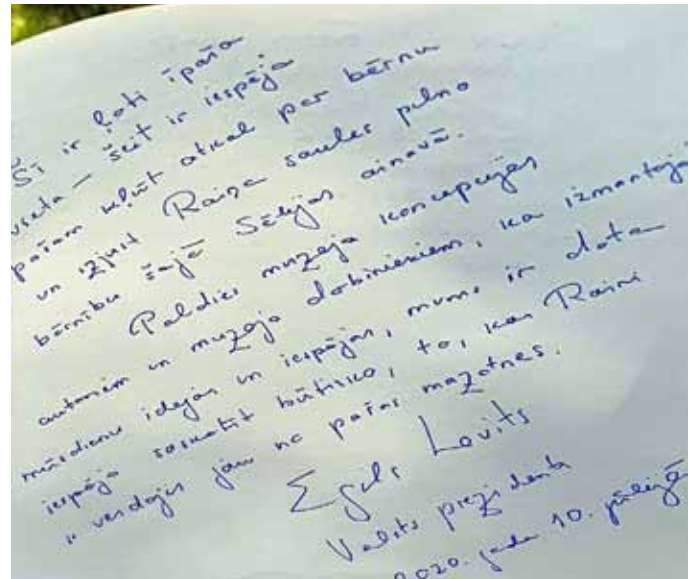 Šī ir ļoti īpaša
vieta – šeit ir iespēja
pašam kļūt atkal par bērnu
un izjust Raiņa saules pilno
bērnību šajā Sēlijas ainavā.
Paldies muzeja koncepcijas
autoriem un muzeja darbiniekiem, ka izmantojot
mūsdienu idejas un iespējas, mums ir dota
iespēja saskatīt būtisko, to, kas Raini
ir veidojis jau no pašas mazotnes.
Egils Levits
Valsts prezidents
2020. gada 10. jūlijā